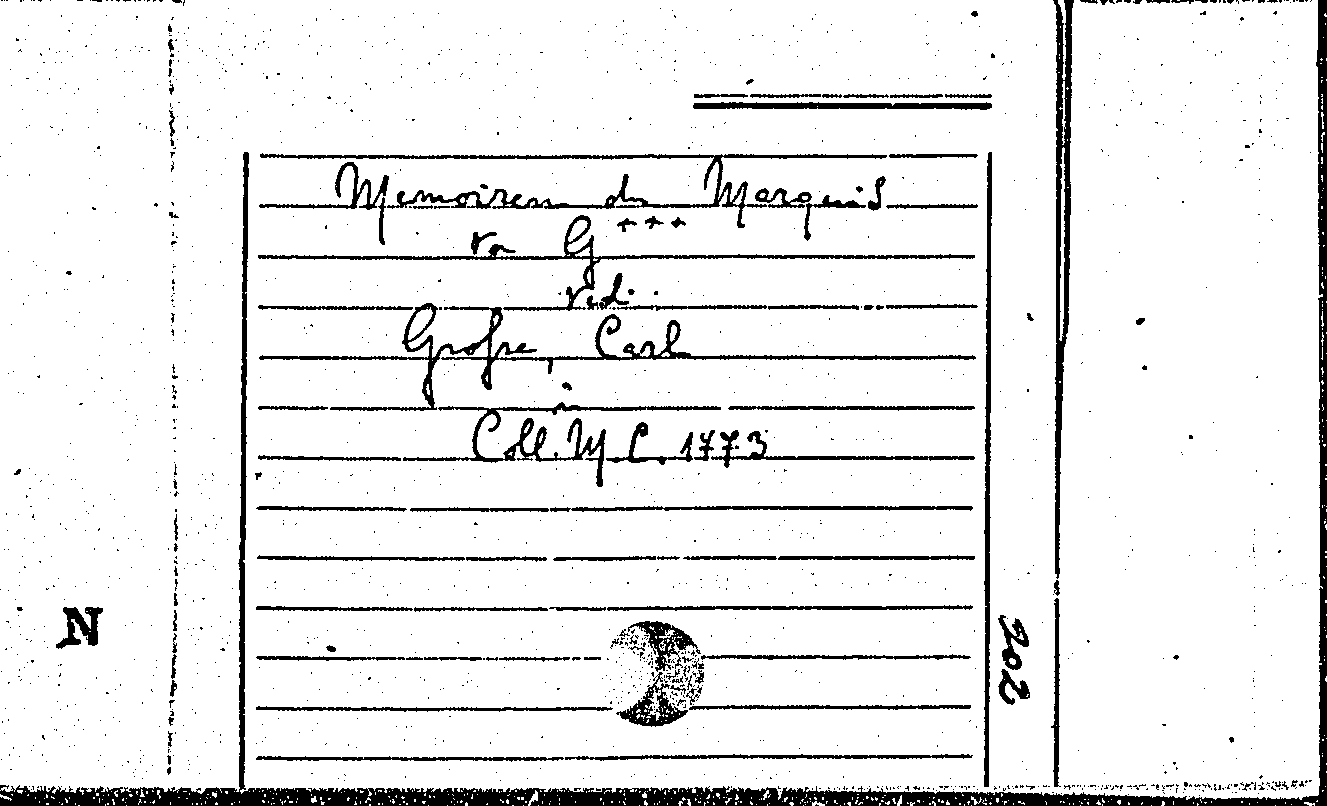 Memoiren des Marquis
von G***
vid.
Grosse, Carl
in
Coll. M. C. 1773
N
202